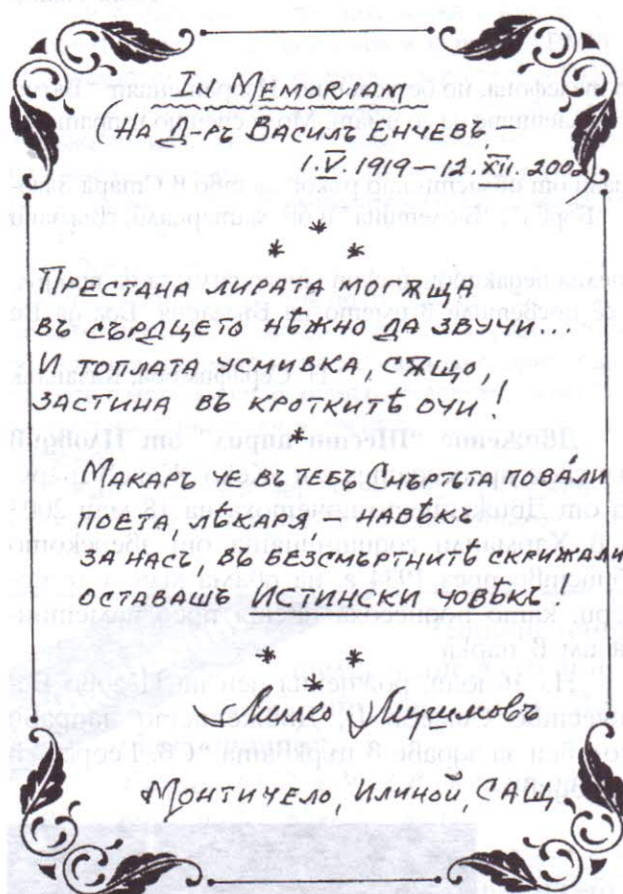 IN MEMORIAM
(НА Д-РЪ ВАСИЛЪ ЕНЧЕВЪ, –
1.V.1919 – 12.XII.2002)
* * *
ПРЕСТАНА ЛИРАТА МОГѪЩА
ВЪ СЪРДЦЕТО НѢЖНО ДА ЗВУЧИ...
И ТОПЛАТА УСМИВКА, СѪЩО,
ЗАСТИНА ВЪ КРОТКИТѢ ОЧИ!
*
МАКАРЪ ЧЕ ВЪ ТЕБЪ СМЪРТЬТА ПОВАЛИ
ПОЕТА, ЛѢКАРЯ, – НАВѢКЪ
ЗА НАСЪ, ВЪ БЕЗСМЪРТНИТѢ СКРИЖАЛИ
ОСТАВАШЪ ИСТИНСКИ ЧОВѢКЪ!
* * *
МОНТИЧЕЛО, ИЛИНОЙ, САЩ